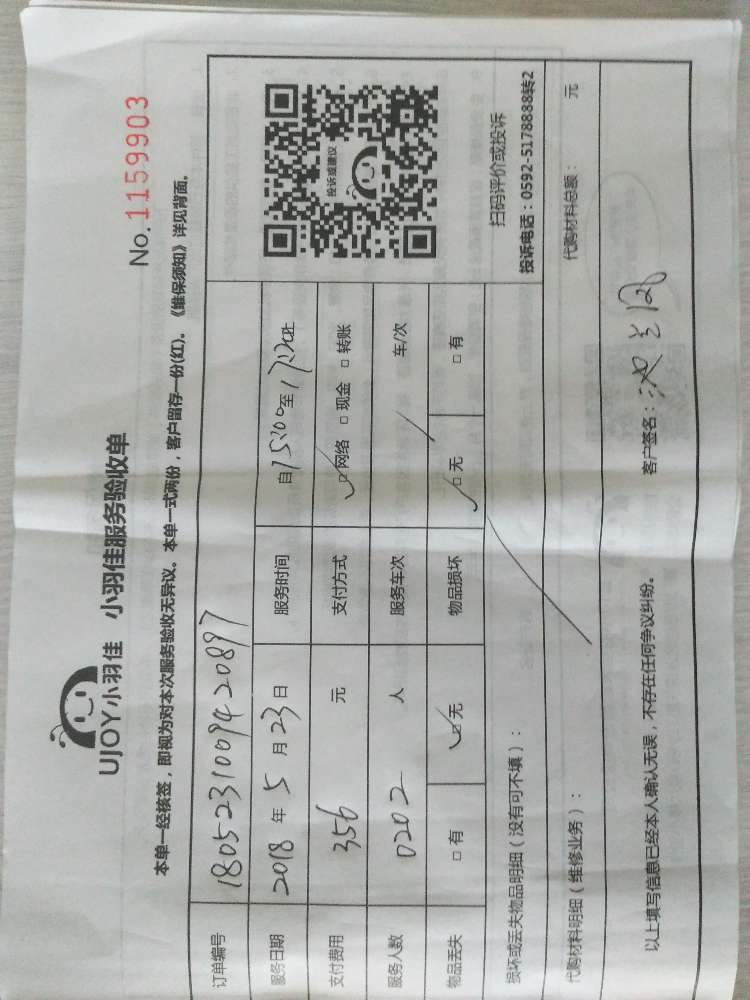 UJOY小羽佳 小羽佳服务验收单
No.1159903
本单一经核签，即视为对本次服务验收无异议。本单一式两份，客户留存一份(红)。《维保须知》详见背面。
订单编号 1805231009420897
服务日期 2018年5月23日 服务时间 自15:00至
支付费用 356 元 支付方式 □网络 □现金 □转账
服务人数 0202 人 服务车次 车/次
物品丢失 □有 □无 物品损坏 □无 □有
投诉或建议
扫码评价或投诉
投诉电话：0592-5178888转2
损坏或丢失物品明细（没有可不填）：
代购材料明细（维修业务）： 代购材料总额： 元
以上填写信息已经本人确认无误，不存在任何争议纠纷。 客户签名：